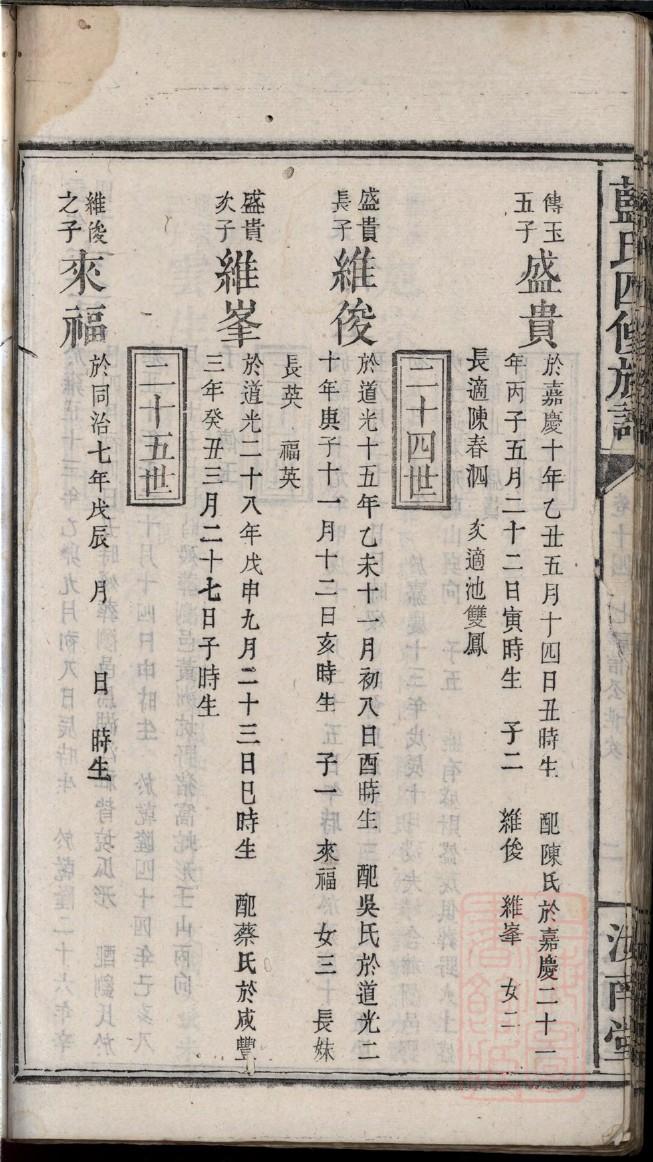 藍氏四修族譜
卷十四
汝南堂
傳玉
五子
盛貴
於嘉慶十年乙丑五月十四日丑時生 配陳氏於嘉慶二十一
年丙子五月二十二日寅時生 子二 維俊 維峯 女二
長適陳春泗 次適池雙鳳
二十四世
盛貴
長子
維俊
於道光十五年乙未十一月初八日酉時生 配吳氏於道光二
十年庚子十一月十二日亥時生 子一 來福 女三 長妹
長英 福英
盛貴
次子
維峯
於道光二十八年戊申九月二十三日巳時生 配蔡氏於咸豐
三年癸丑三月二十七日子時生
二十五世
維俊
之子
來福
於同治七年戊辰 月 日 時生